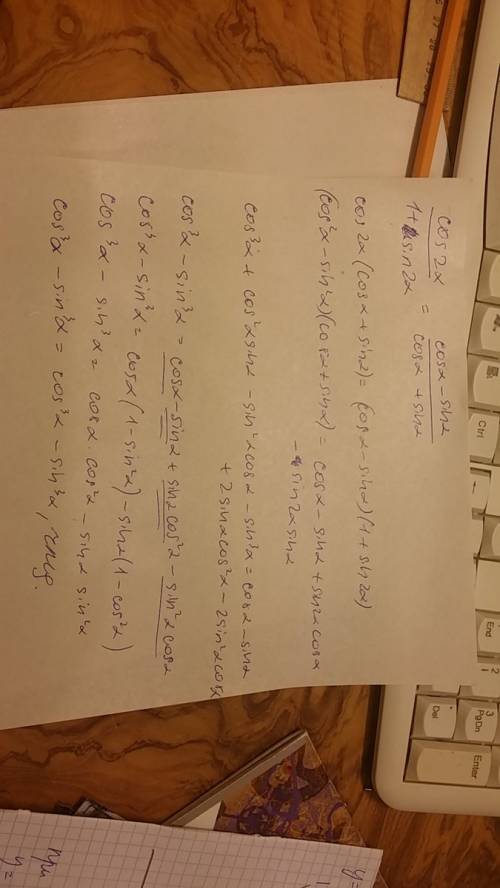 cos2α / 1+sin2α = cosα-sinα / cosα+sinα
cos2α(cosα+sinα)=(cosα-sinα)(1+sin2α)
(cos²α-sin²α)(cosα+sinα)= cosα-sinα+sin2αcosα
-sin2αsinα
cos³α+cos²αsinα-sin²αcosα-sin³α=cosα-sinα
+2sinαcos²α-2sin²αcosα
cos³α-sin³α=cosα-sinα+sinαcos²α-sin²αcosα
cos³α-sin³α=cosα(1-sin²α)-sinα(1-cos²α)
cos³α-sin³α=cosα·cos²α-sinα sin²α
cos³α-sin³α=cos³α-sin³α, чтд.
Ctrl
End
1
2
3
PgDn
Del
Enter
при
y=
y=